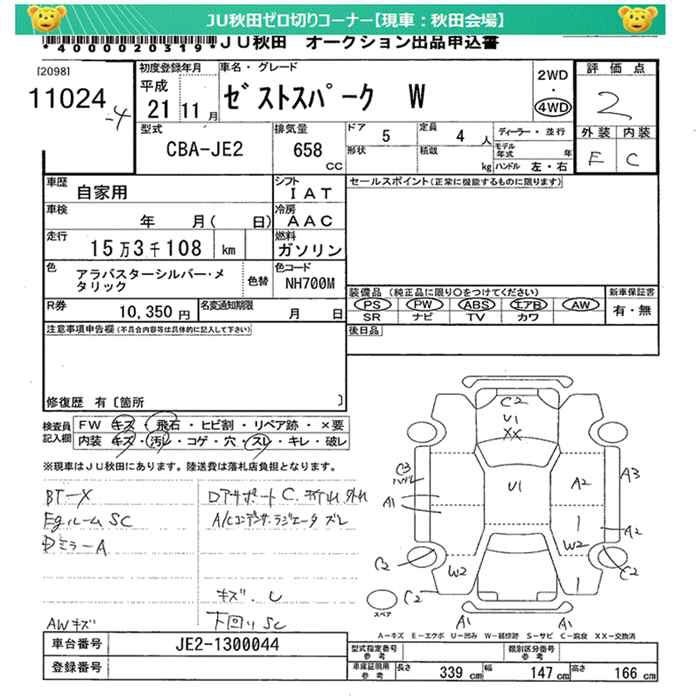 JU秋田ゼロ切りコーナー【現車：秋田会場】
*4000020319*
JU秋田 オークション出品申込書
[2098]
11024
-4
初度登録年月
平成
21 11月
車名・グレード
ゼストスパーク W
2WD
・
4WD
評価点
2
外装 内装
E C
型式
CBA-JE2
排気量
658
CC
ドア 5
形状
定員 4 人
積載 kg
ディーラー・並行
モデル年式 年
ハンドル 左・右
車歴 自家用
シフト IAT
車検 年 月( 日)
冷房 AAC
走行 15万3千108 km
燃料 ガソリン
色 アラバスターシルバー・メタリック
色替
色コード NH700M
R券 10,350円
名変通知期限 月 日
セールスポイント(正常に機能するものに限ります)
装備品 (純正品に限り○をつけてください)
PS PW ABS エアB AW
SR ナビ TV カワ
新車保証書
有・無
後日品
注意事項申告欄(不具合内容等は具体的に記入して下さい)
修復歴 有〔箇所 〕
検査員記入欄
FW キズ・飛石・ヒビ割・リペア跡・×要
内装 キズ・汚レ・コゲ・穴・スレ・キレ・破レ
※現車はJU秋田にあります。陸送費は落札店負担となります。
BTーX
Egルーム SC
DミラーA
AWキズ
Rアサポート C.
A/Cコンデンサ.ラジエータ ズレ
キズ.U
下回り SC
C2
U1
XX
U1
A1
A3
A2
A2
W2
W2
C2
C2
A1
A1
スペア
A－キズ E－エクボ U－凹み W－補修跡 S－サビ C－腐食 XX－交換済
車台番号 JE2-1300044
登録番号
型式指定番号
参考
類別区分番号
参考
車庫証明用
参考
長さ 339 cm 幅 147 cm 高さ 166 cm